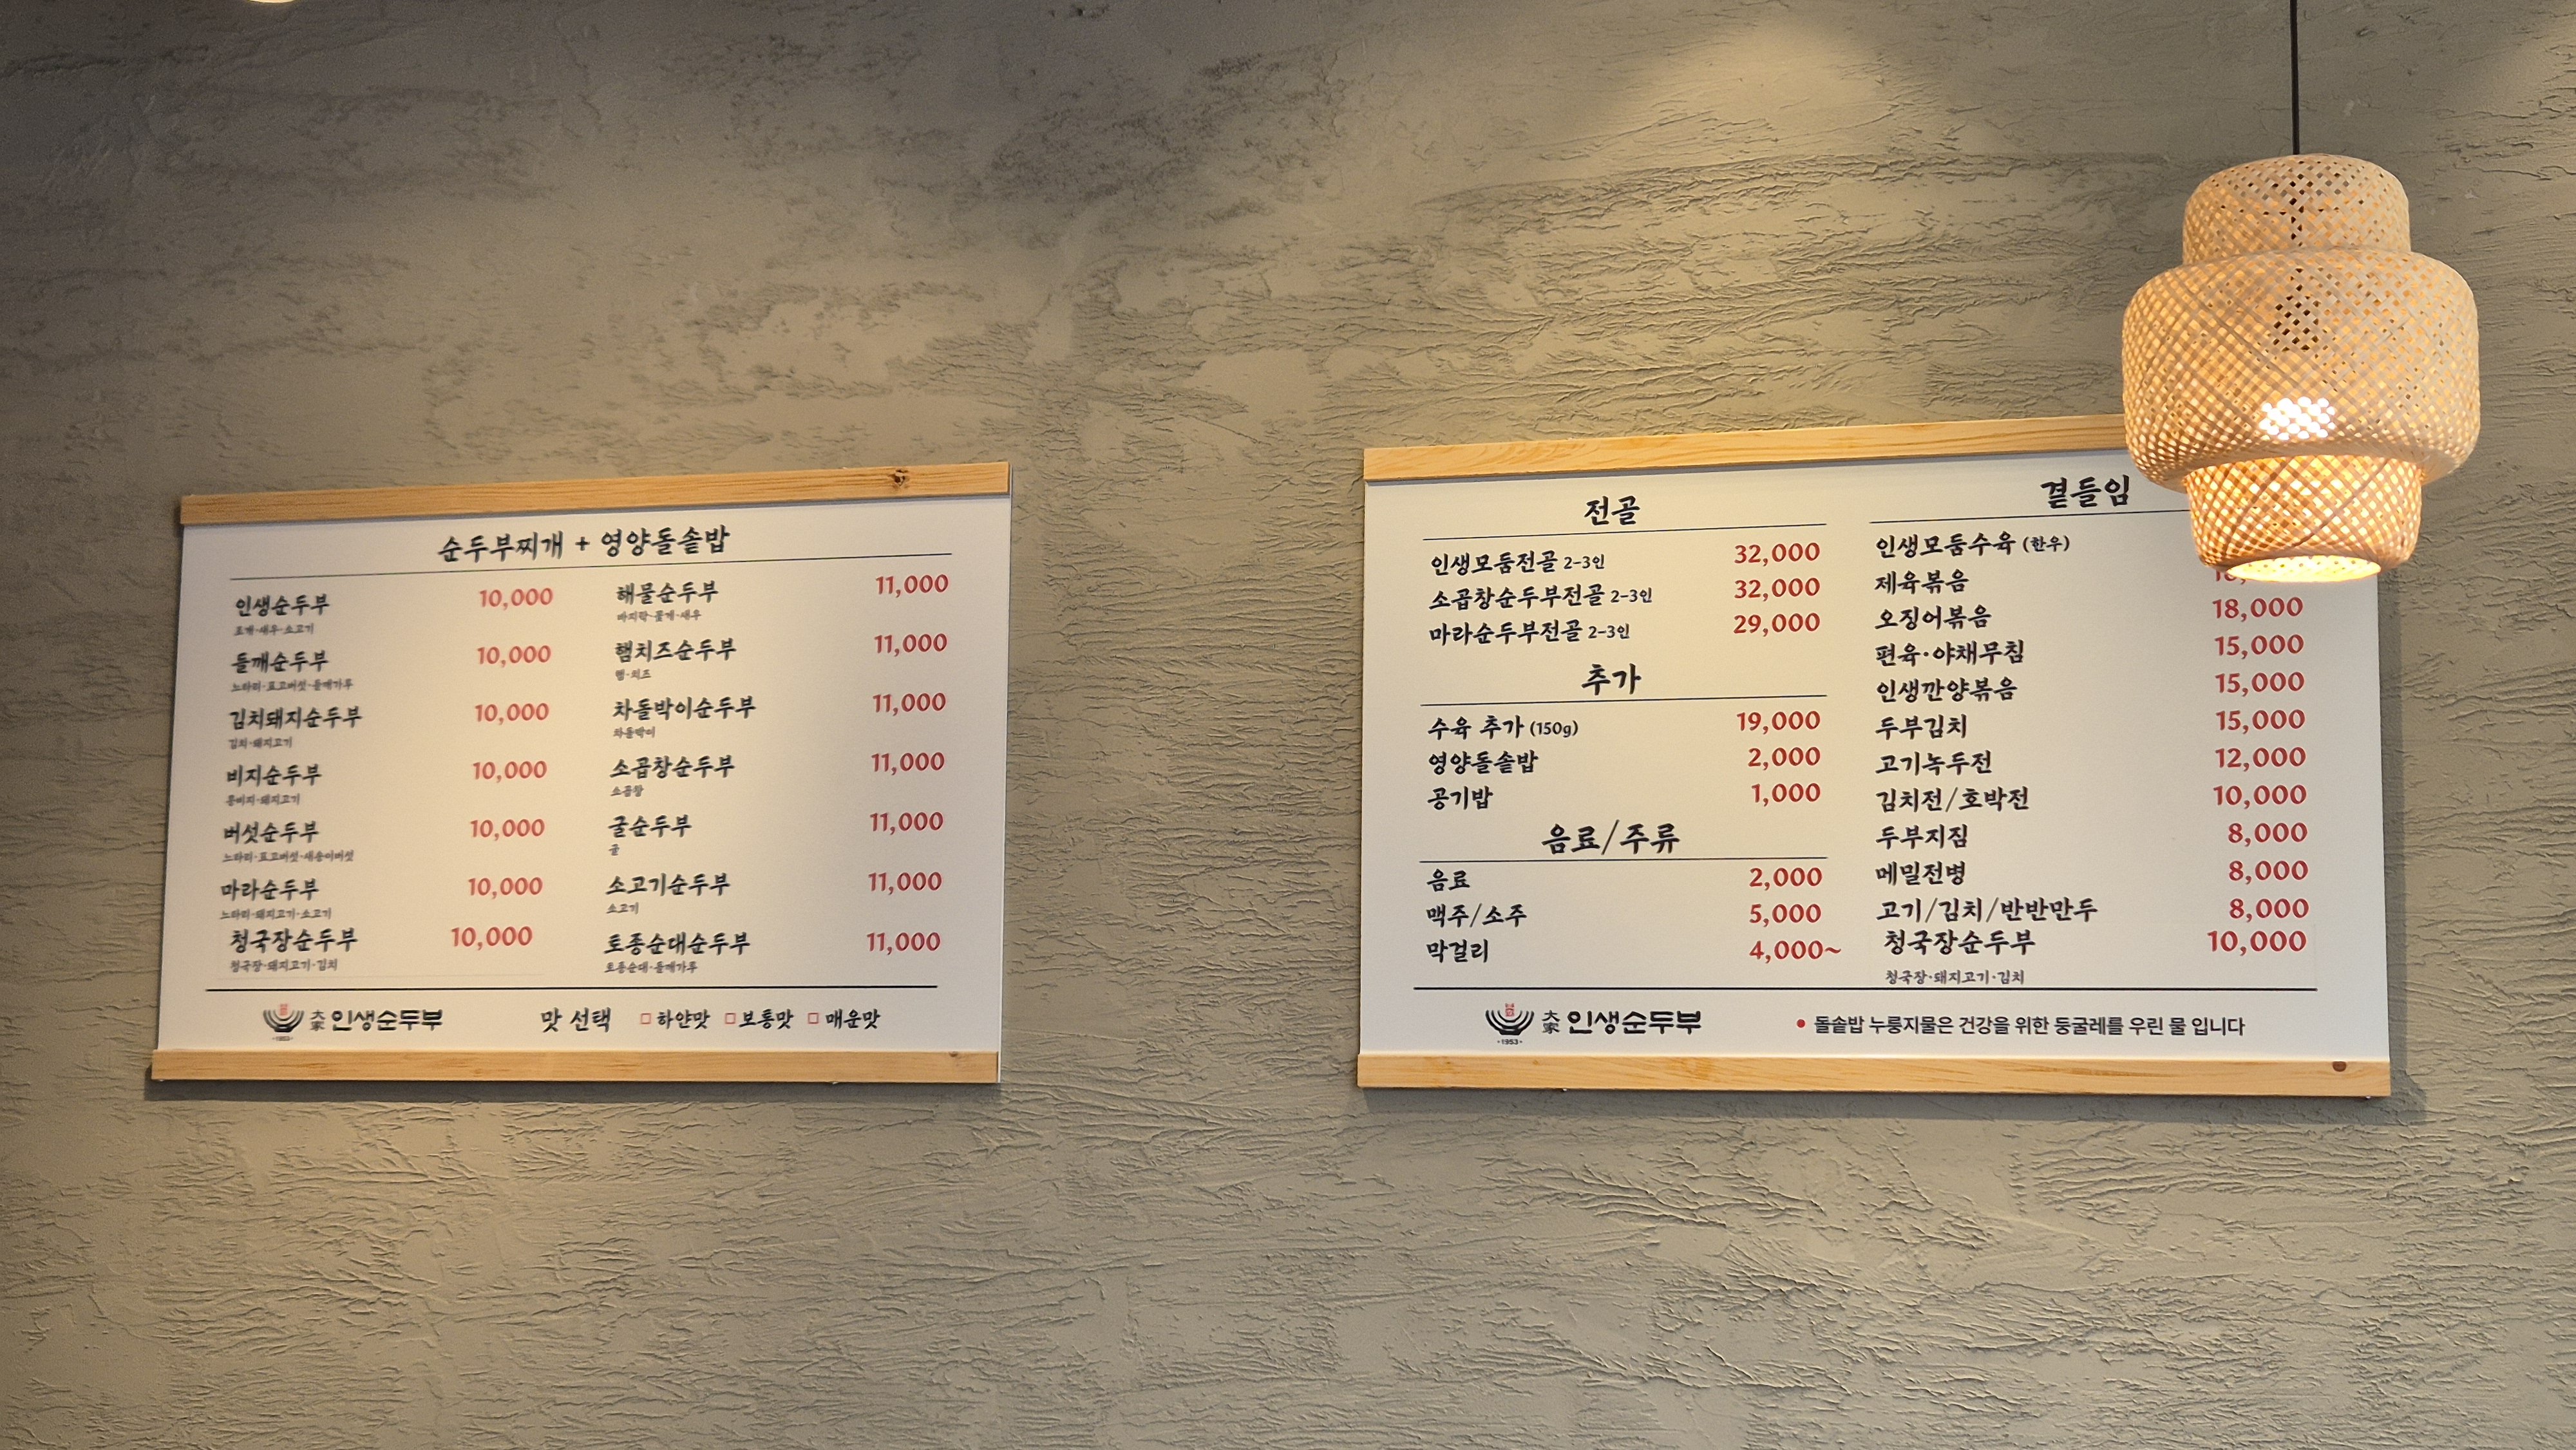 순두부찌개 + 영양돌솥밥
인생순두부 10,000
조개·새우·소고기
들깨순두부 10,000
느타리·표고버섯·들깨가루
김치돼지순두부 10,000
김치·돼지고기
비지순두부 10,000
콩비지·돼지고기
버섯순두부 10,000
느타리·표고버섯·새송이버섯
마라순두부 10,000
느타리·돼지고기·소고기
청국장순두부 10,000
청국장·돼지고기·김치
해물순두부 11,000
바지락·꽃게·새우
햄치즈순두부 11,000
햄·치즈
차돌박이순두부 11,000
차돌박이
소곱창순두부 11,000
소곱창
굴순두부 11,000
굴
소고기순두부 11,000
소고기
토종순대순두부 11,000
토종순대·들깨가루
大家 인생순두부
·1953·
맛 선택 □ 하얀맛 □ 보통맛 □ 매운맛
전골
인생모둠전골 2-3인 32,000
소곱창순두부전골 2-3인 32,000
마라순두부전골 2-3인 29,000
추가
수육 추가 (150g) 19,000
영양돌솥밥 2,000
공기밥 1,000
음료/주류
음료 2,000
맥주/소주 5,000
막걸리 4,000~
곁들임
인생모둠수육 (한우)
제육볶음
오징어볶음 18,000
편육·야채무침 15,000
인생깐양볶음 15,000
두부김치 15,000
고기녹두전 12,000
김치전/호박전 10,000
두부지짐 8,000
메밀전병 8,000
고기/김치/반반만두 8,000
청국장순두부 10,000
청국장·돼지고기·김치
大家 인생순두부
·1953·
• 돌솥밥 누룽지물은 건강을 위한 둥굴레를 우린 물 입니다